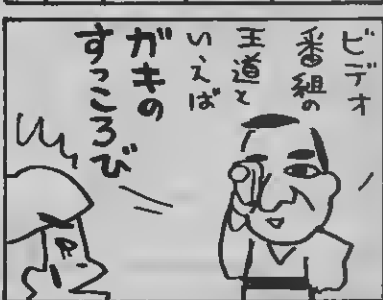 ビデオ
番組の
王道と
いえば
ガキの
すっころび